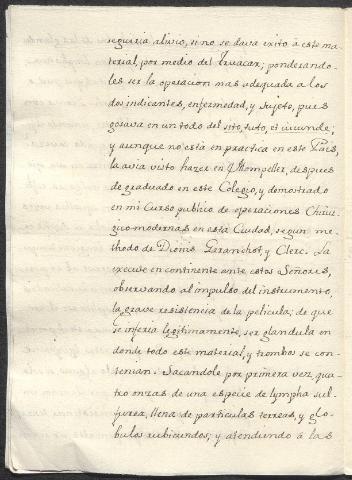 seguiria alivio, si no se dava exito à este ma-
terial, por medio del truacar; ponderando-
les ser la operacion mas adequada a los
dos indicantes, enfermedad, y sujeto, pues
gosava en un todo del sito, tuto, et iucunde;
y aunque no està en practica en este Pais,
la avia visto hazer en Mompeller, despues
de graduado en este Colegio, y demostrado
en mi Curso publico de operaciones Chirur-
gico-modernas en esta Ciudad, segun me-
thodo de Dionis Garanchot, y Clerc. La
execute en continente ante estos Señores,
observando al impulso del instrumento,
la grave resistencia de la pelicula; de que
se inferia legitimamente, ser glandula en
donde todo este material, y trombos se con-
tenian: Sacandole por primera vez, qua-
tro onzas de una especie de lympha sul-
furea, llena de particulas terreas, y glo-
bulos rubicundos; y atendiendo à las